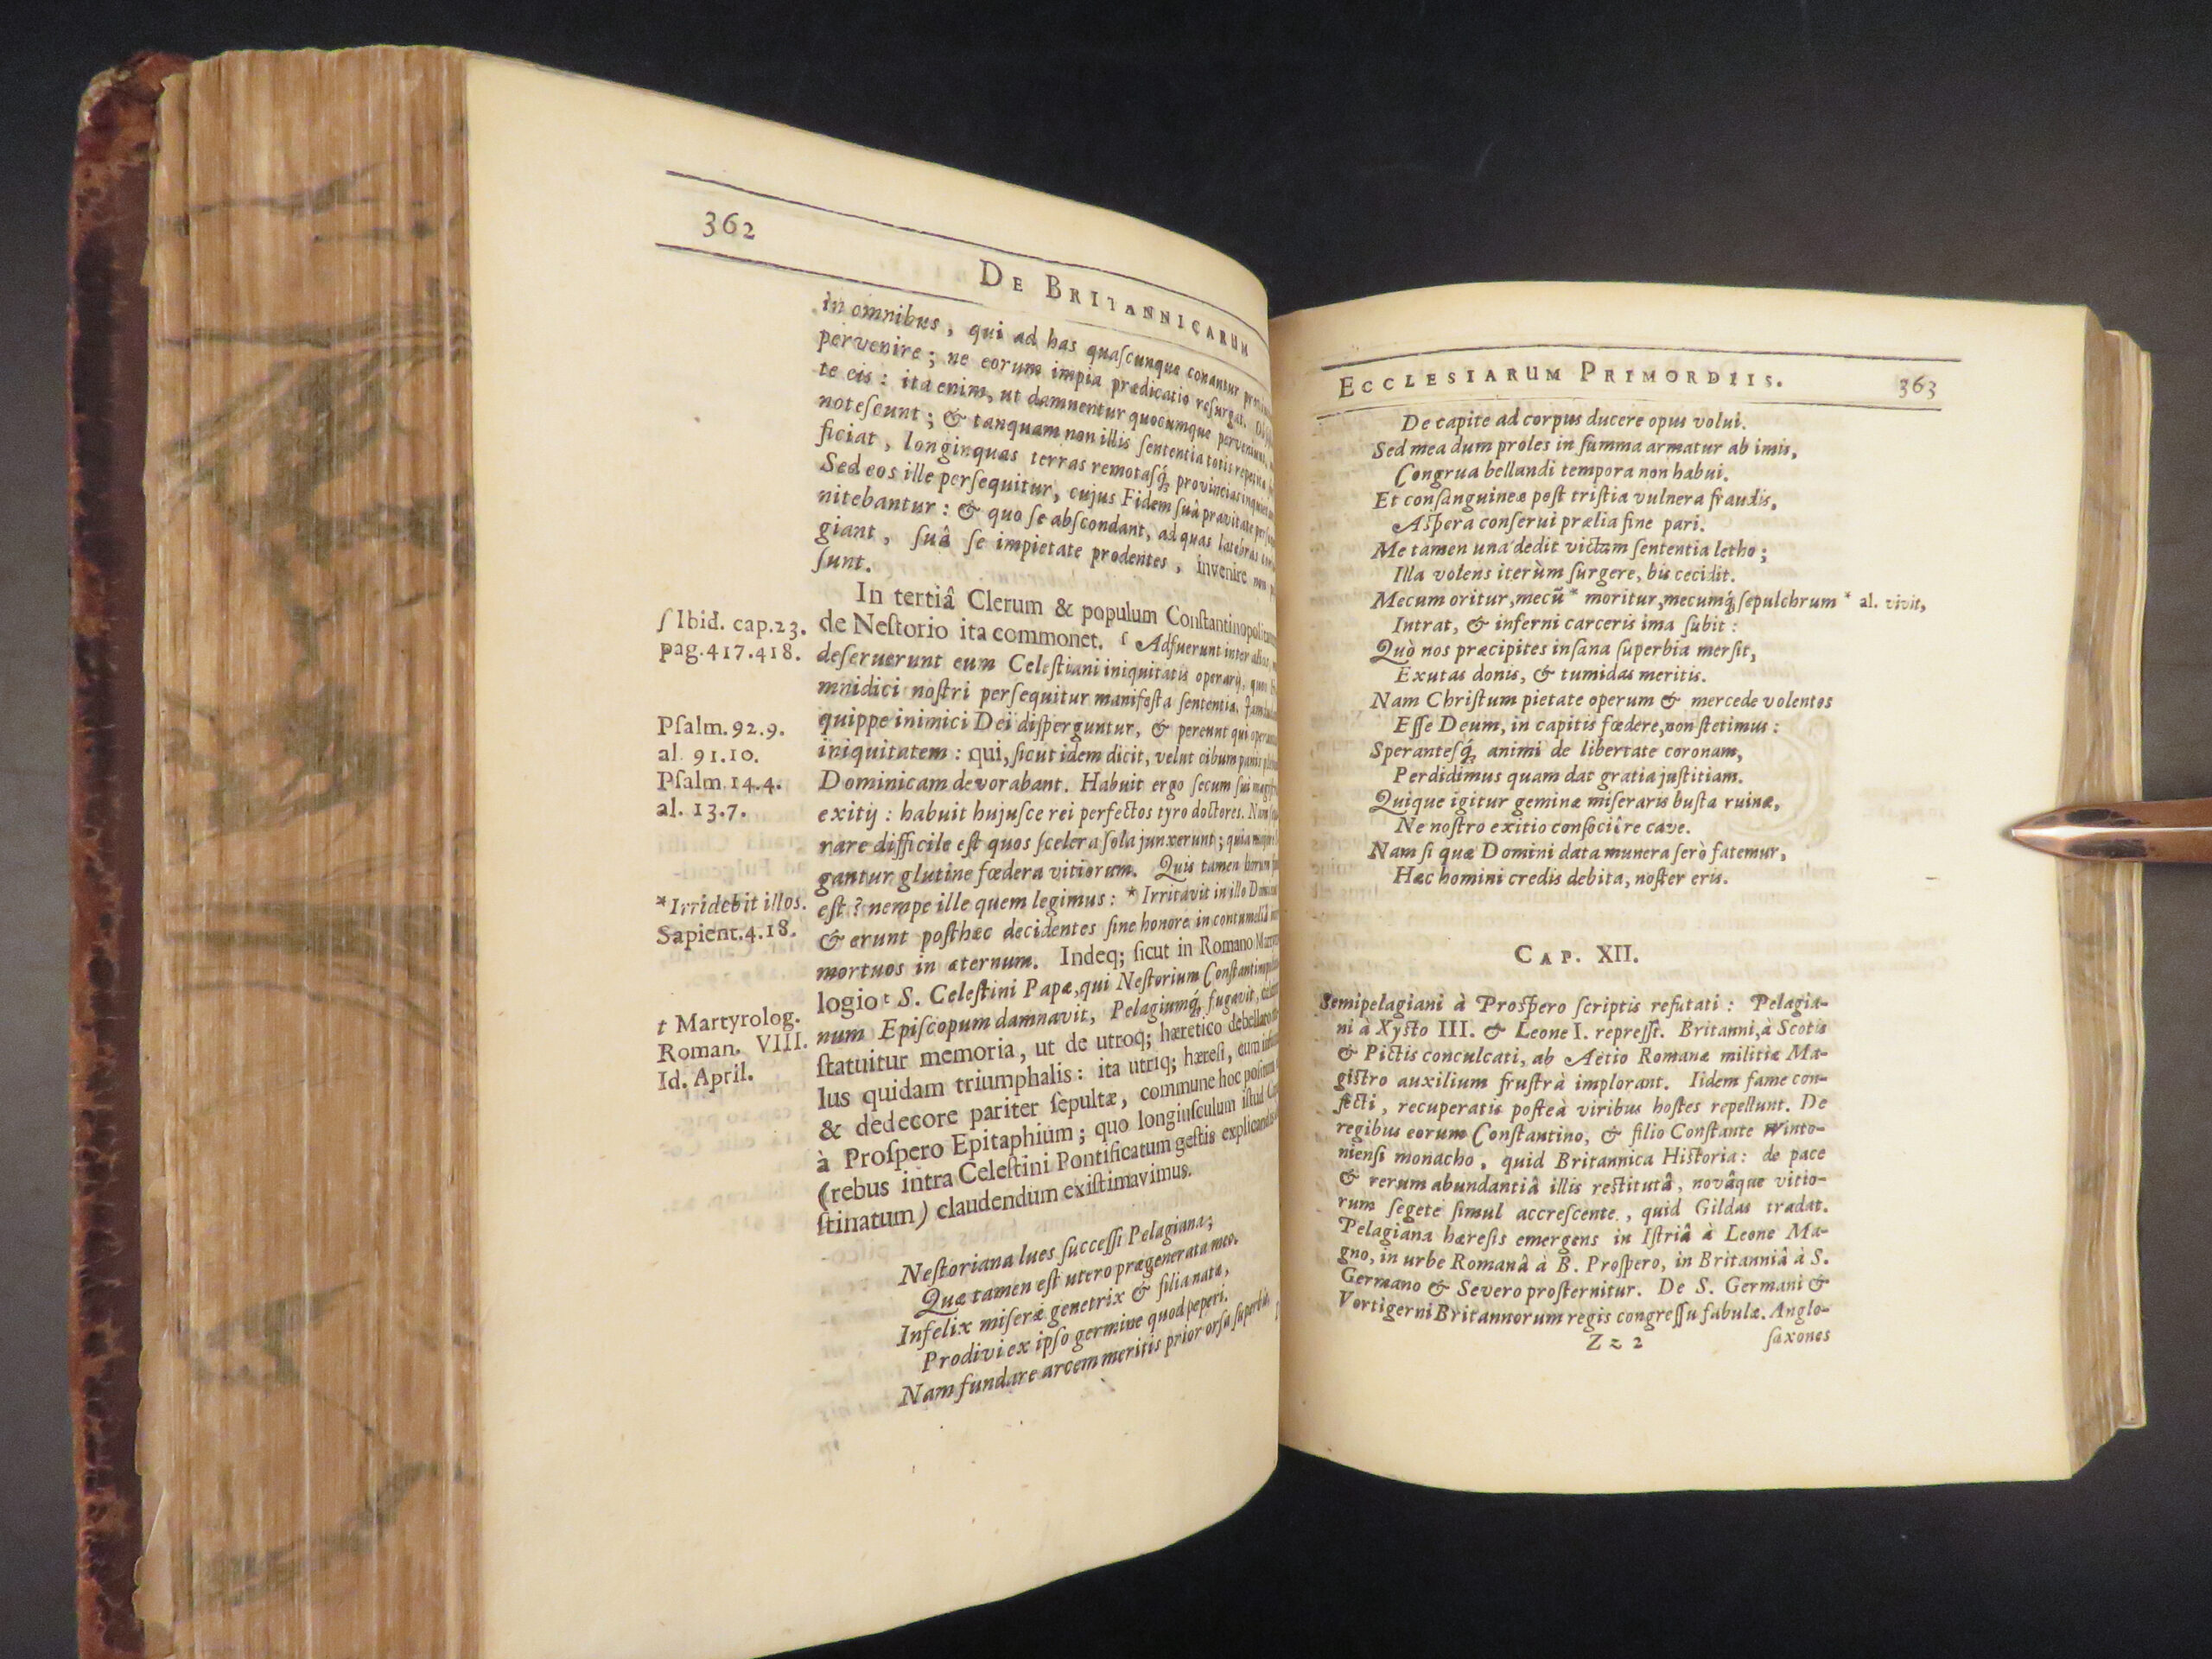 362
DE BRITANNICARUM
in omnibus, qui ad has quaſcunque conantur
pervenire; ne eorum impia prædicatio reſurgat.
te eis: ita enim, ut damnentur quocumque perveniunt,
noteſcunt; & tanquam non illis ſententia totis
ficiat, longinquas terras remotaſq́; provincias
Sed eos ille perſequitur, cujus Fidem ſuâ pravitate
nitebantur: & quo ſe abſcondant, ad quas latebras
giant, ſuâ ſe impietate prodentes, invenire non
ſunt.
In tertiâ Clerum & populum
de Neſtorio ita commonet. ſ Adfuerunt inter alios,
deſeruerunt eum Celeſtiani iniquitatis operarij, quos
mnidici noſtri perſequitur manifeſta ſententia.
quippe inimici Dei diſperguntur, & pereunt qui
iniquitatem: qui, ſicut idem dicit, velut cibum panis
Dominicam devorabant. Habuit ergo ſecum ſui
exitij: habuit hujuſce rei perfectos tyro doctores.
rare difficile eſt quos ſcelera ſola junxerunt; quia
gantur glutine fœdera vitiorum. Quis tamen horum
eſt? nempe ille quem legimus: * Irritavit in illo
& erunt poſthæc decidentes ſine honore, in contumeliâ
mortuos in æternum. Indeq; ſicut in Romano
logio t S. Celeſtini Papæ, qui Neſtorium
num Epiſcopum damnavit, Pelagiumq́; fugavit,
ſtatuitur memoria, ut de utroq; hæretico debellato
lus quidam triumphalis: ita utriq; hæreſi, cum
& dedecore pariter ſepultæ, commune hoc poſitum
à Proſpero Epitaphium; quo longiuſculum iſtud
(rebus intra Celeſtini Pontificatum geſtis explicandis
ſtinatum) claudendum exiſtimavimus.
Neſtoriana lues ſucceſſi Pelagianæ;
Quæ tamen eſt utero prægenerata meo.
Infelix miſeræ genetrix & filia natæ,
Prodivi ex ipſo germine quod peperi.
Nam fundare arcem meritis prior orſa ſuperbis,
ſ Ibid. cap.23.
pag.417.418.
Pſalm.92.9.
al. 91.10.
Pſalm.14.4.
al. 13.7.
* Irridebit illos.
Sapient.4.18.
t Martyrolog.
Roman. VIII.
Id. April.
ECCLESIARUM PRIMORDIIS. 363
De capite ad corpus ducere opus volui.
Sed mea dum proles in ſumma armatur ab imis,
Congrua bellandi tempora non habui.
Et conſanguineæ poſt triſtia vulnera fraudis,
Aſpera conſerui prælia fine pari.
Me tamen una dedit victam ſententia letho;
Illa volens iterùm ſurgere, bis cecidit.
Mecum oritur, mecū * moritur, mecumq́; ſepulchrum * al. vivit,
Intrat, & inferni carceris ima ſubit:
Quò nos præcipites inſana ſuperbia merſit,
Exutas donis, & tumidas meritis.
Nam Chriſtum pietate operum & mercede volentes
Eſſe Deum, in capitis fœdere, non ſtetimus:
Sperantesq́; animi de libertate coronam,
Perdidimus quam dat gratia juſtitiam.
Quique igitur geminæ miſeraris buſta ruinæ,
Ne noſtro exitio conſociêre cave.
Nam ſi quæ Domini data munera ſerò fatemur,
Hæc homini credis debita, noſter eris.
CAP. XII.
Semipelagiani à Proſpero ſcriptis refutati: Pelagia-
ni à Xyſto III. & Leone I. repreſſi. Britanni, à Scotis
& Pictis conculcati, ab Aëtio Romanæ militiæ Ma-
giſtro auxilium fruſtrà implorant. Iidem fame con-
fecti, recuperatis poſteà viribus hoſtes repellunt. De
regibus eorum Conſtantino, & filio Conſtante Winto-
nienſi monacho, quid Britannica Hiſtoria: de pace
& rerum abundantiâ illis reſtitutâ, novâque vitio-
rum ſegete ſimul accreſcente, quid Gildas tradat.
Pelagiana hæreſis emergens in Iſtriâ à Leone Ma-
gno, in urbe Romanâ à B. Proſpero, in Britanniâ à S.
Germano & Severo proſternitur. De S. Germani &
Vortigerni Britannorum regis congreſſu fabulæ. Anglo-
Zz 2 ſaxones